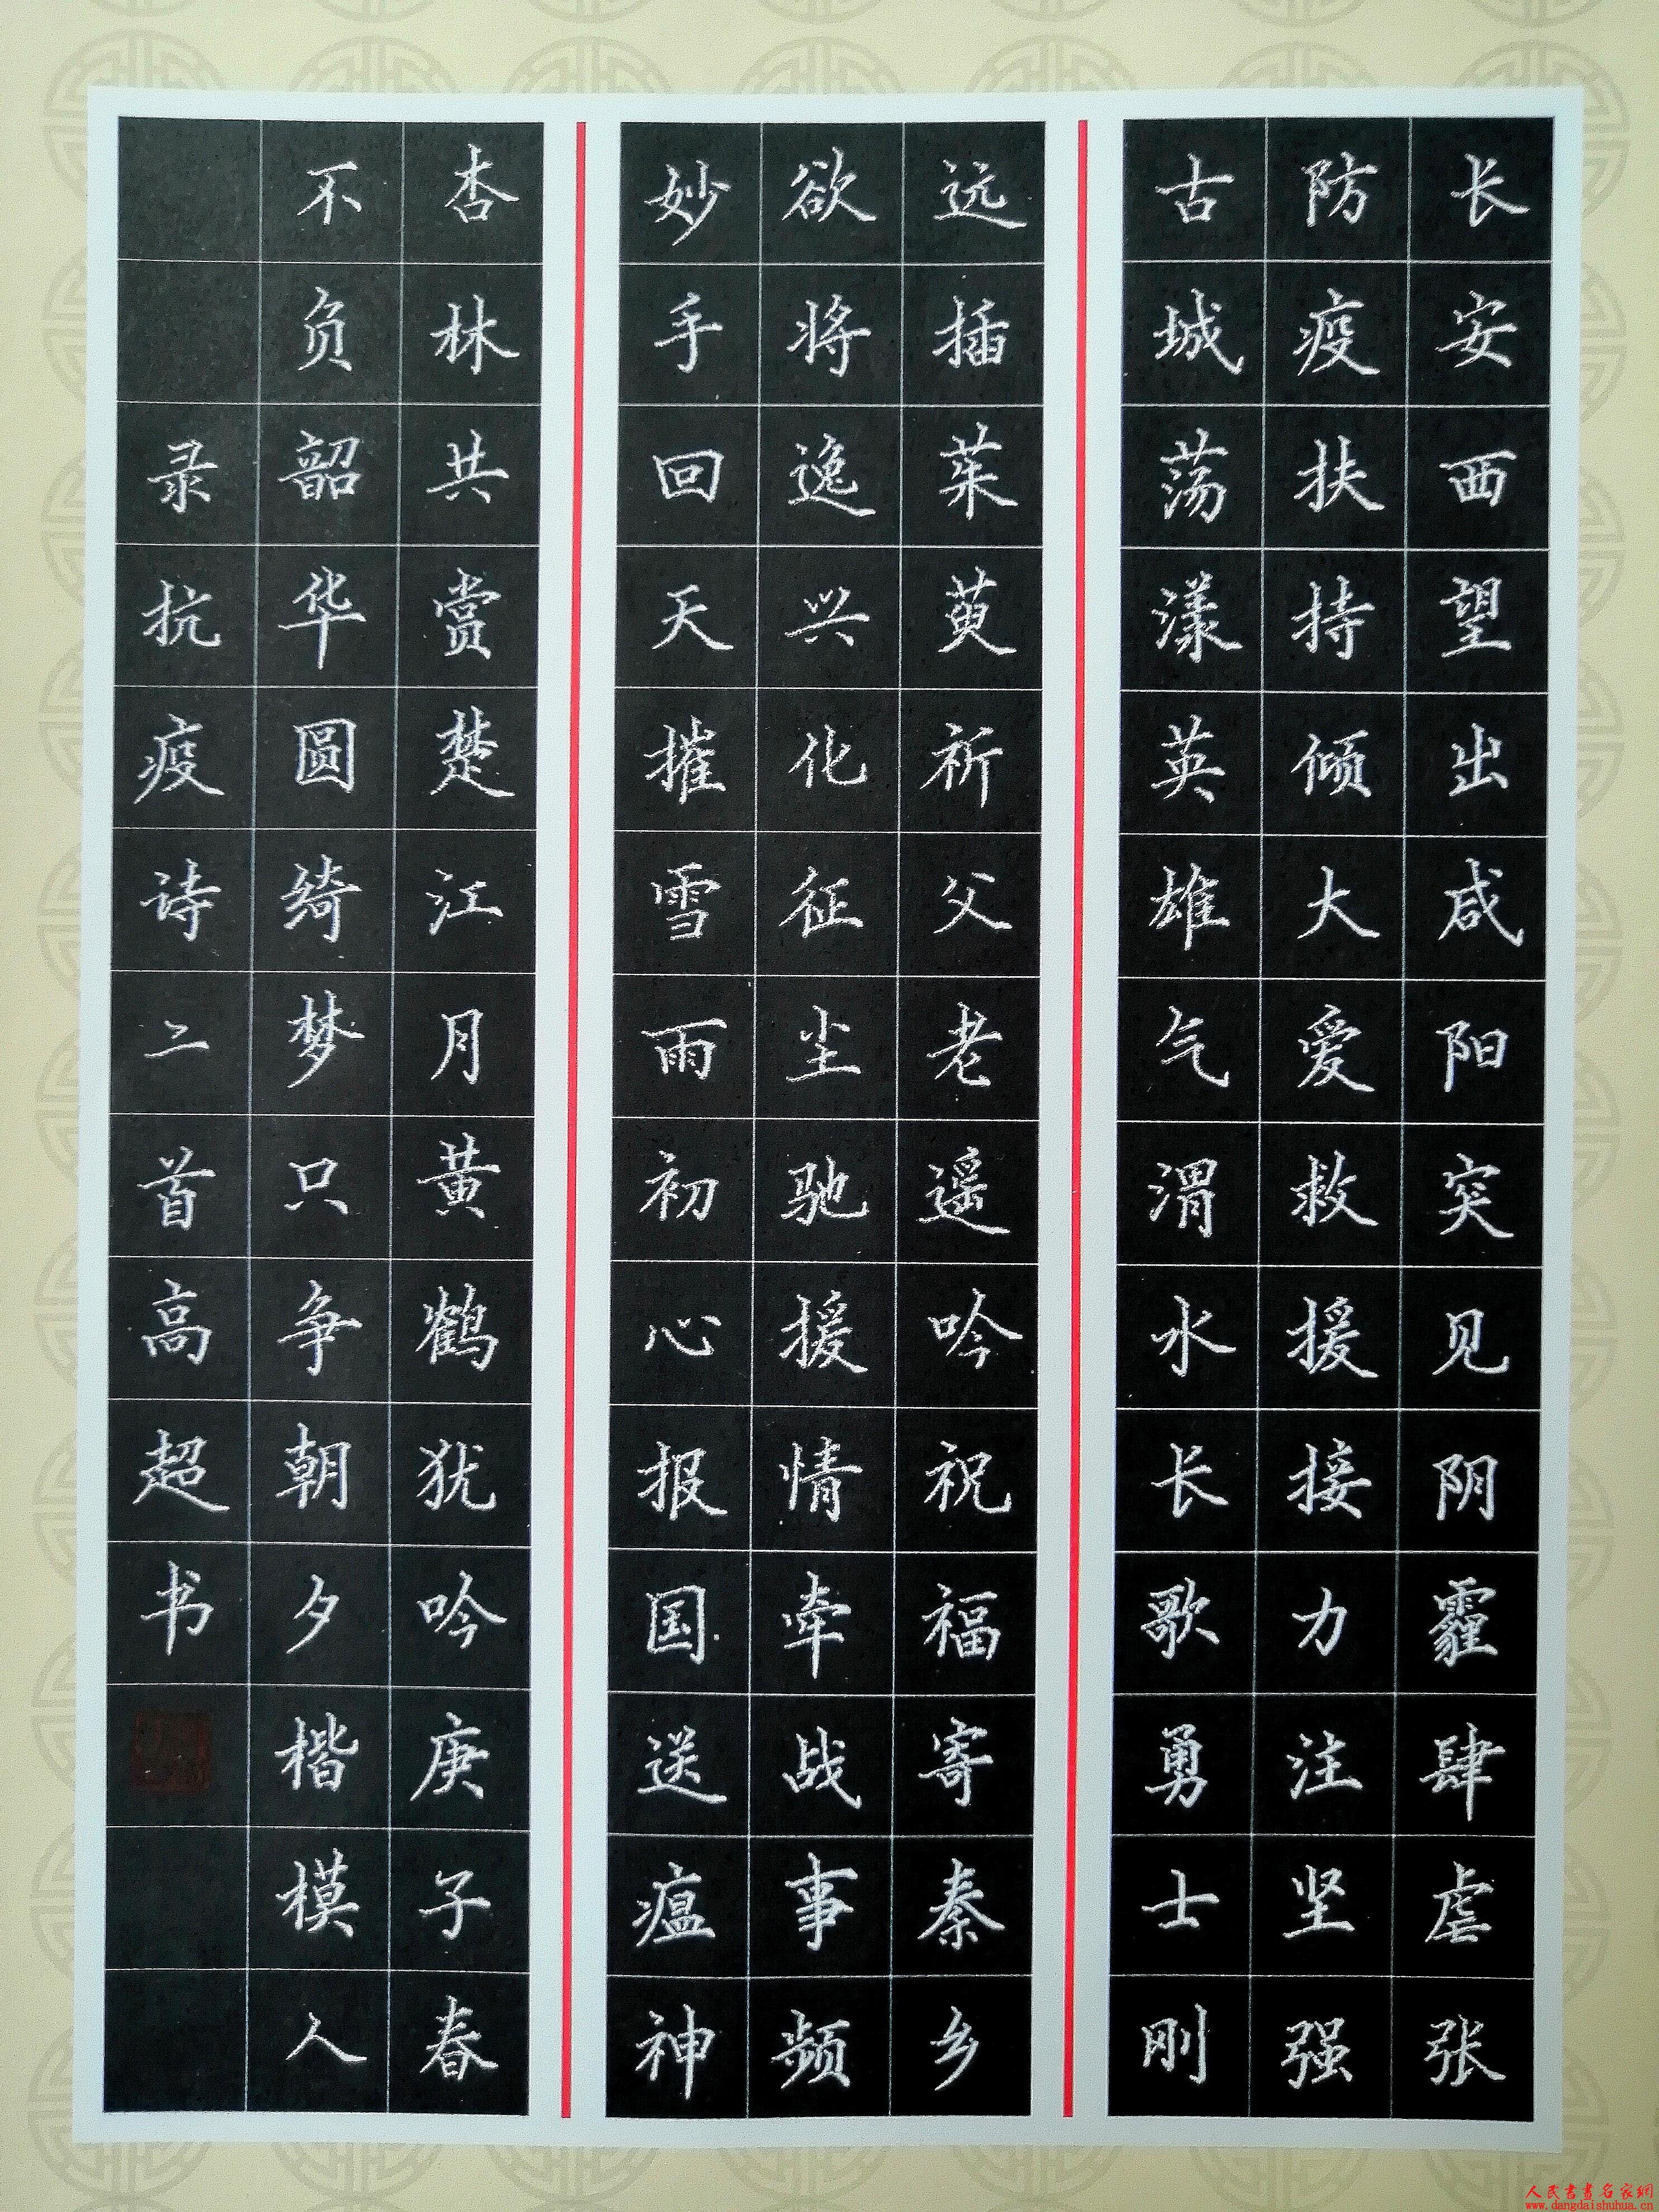 长安西望出咸阳突见阴霾肆虐张
防疫扶持倾大爱救援接力注坚强
古城荡漾英雄气渭水长歌勇士刚
远插茱萸祈父老遥吟祝福寄秦乡
欲将逸兴化征尘驰援情牵战事频
妙手回天摧雪雨初心报国送瘟神
杏林共赏楚江月黄鹤犹吟庚子春
不负韶华圆绮梦只争朝夕楷模人
录抗疫诗二首高超书
人民书画名家網
www.dangdaishuhua.cn